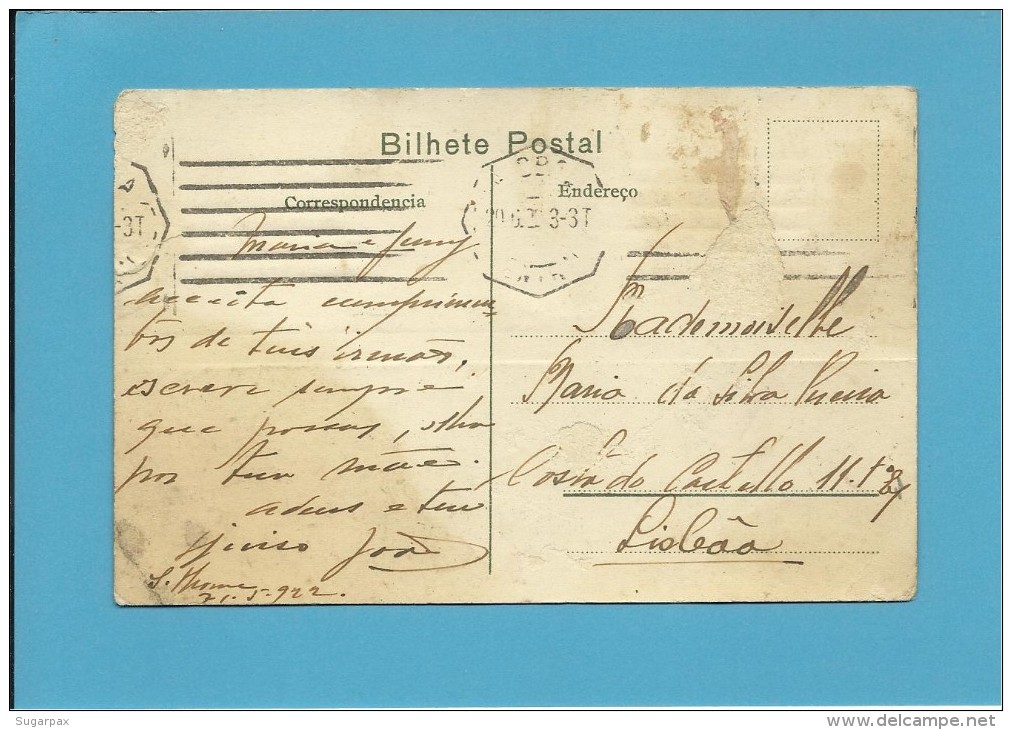 Bilhete Postal
Correspondencia
Endereço
3-3T
-3T
Maria e
acceita cumprimen-
tos de teus irmãos,
escreve sempre
que possas, olha
por tua mãe.
adeus e teu
João
S. Thome
21-5-922.
Mademoiselle
Maria da Silva
Costa do Castello 11-1º
Lisbôa
Sugarpax
www.delcampe.net